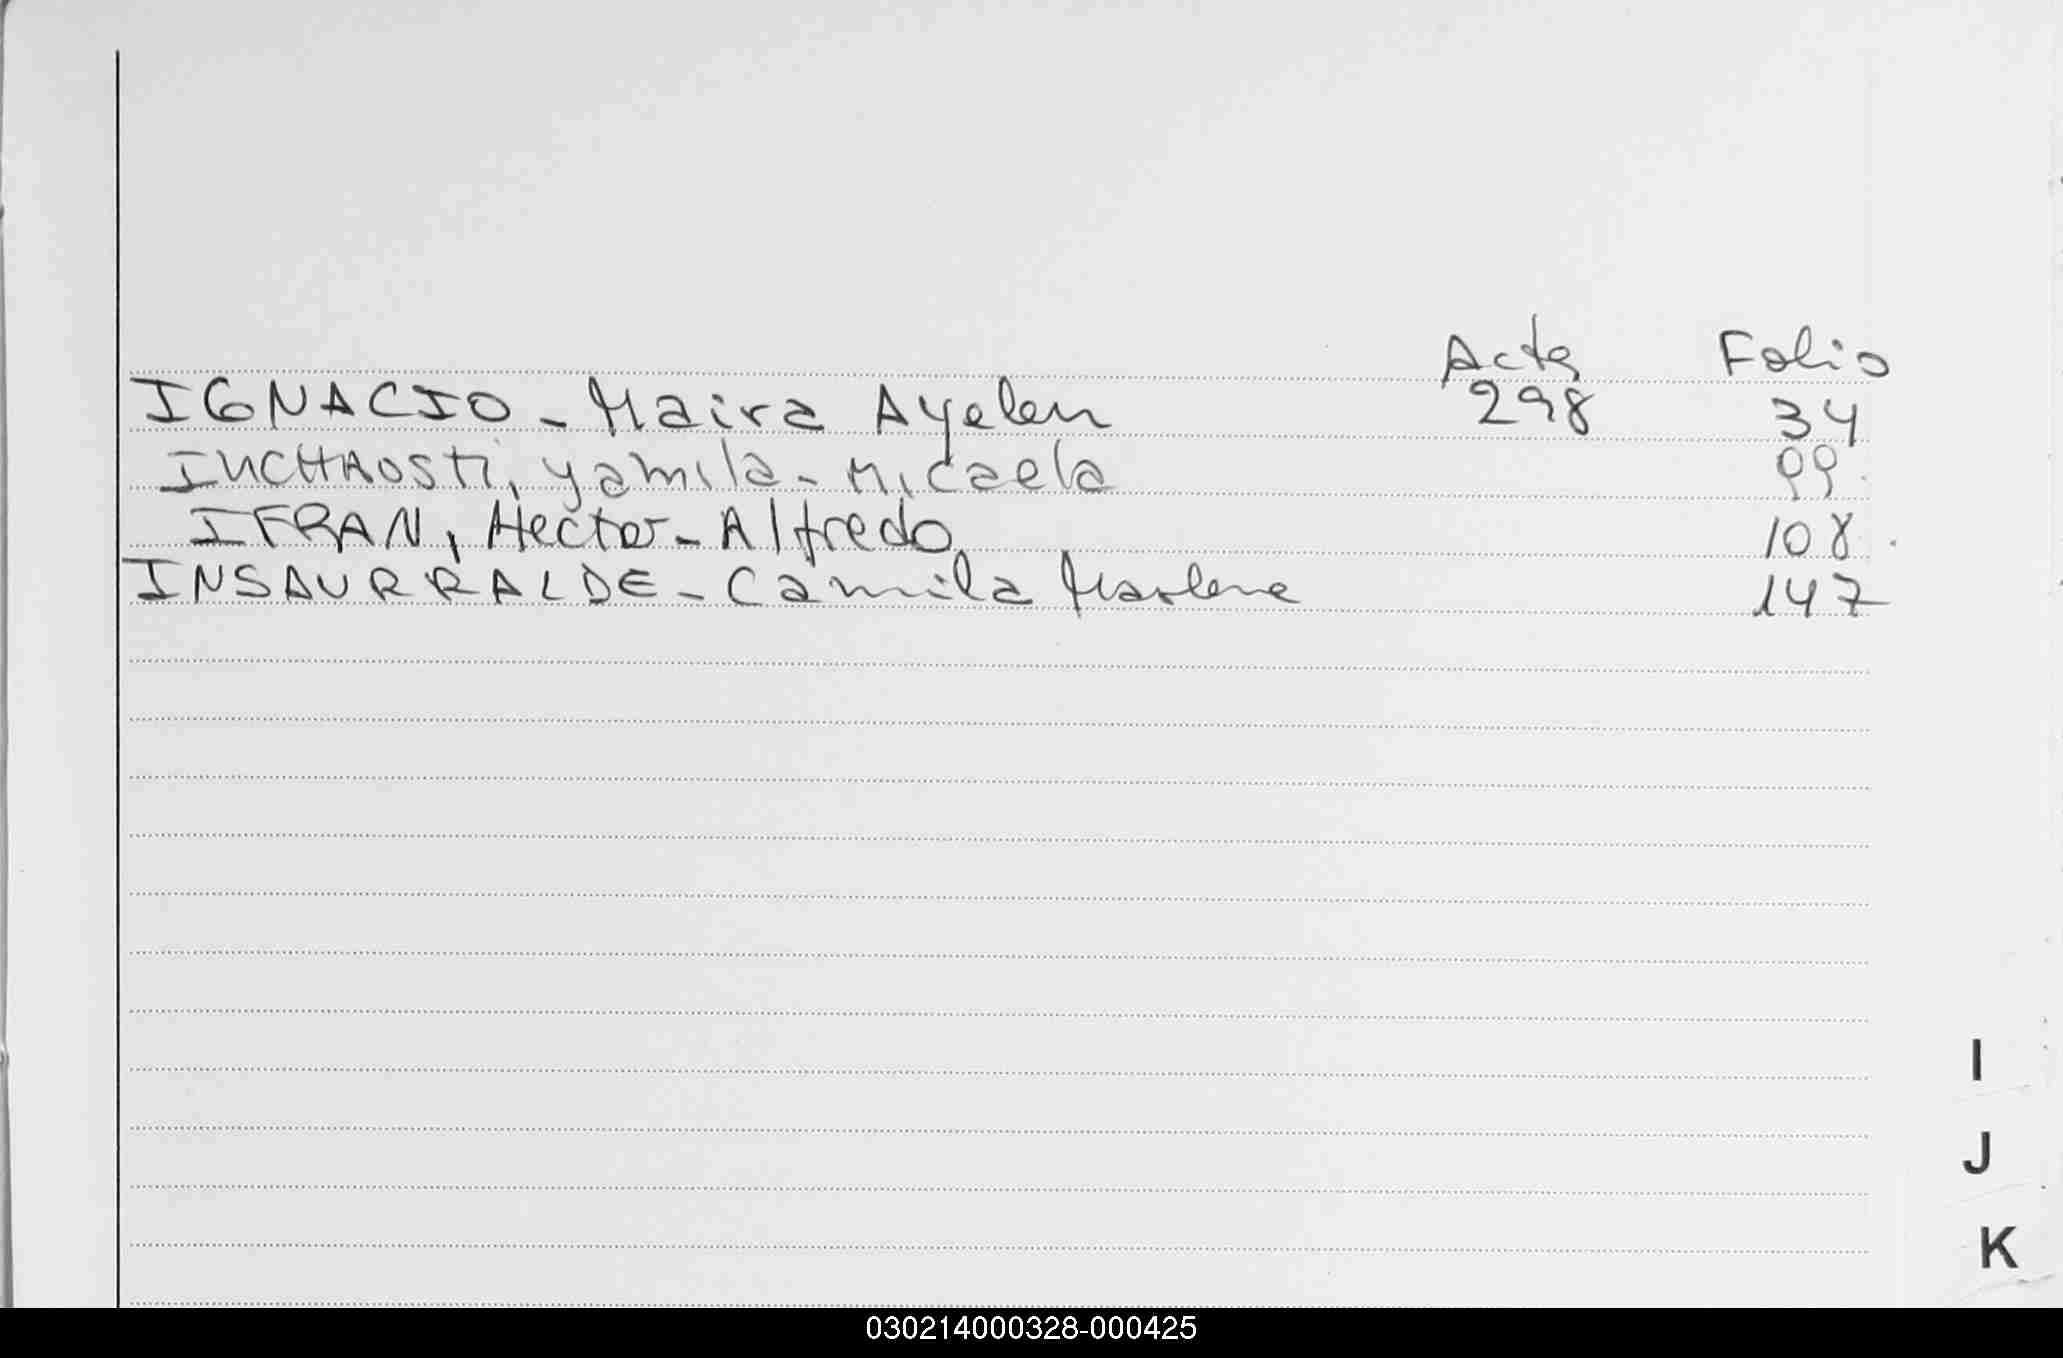 Acta Folio
IGNACIO - Maira Ayelen 298 34
INCHAOSTi, yamila - Micaela 99.
IFRAN, Hector - Alfredo 108.
INSAURRALDE - Camila Marlene 147
I
J
K
030214000328-000425